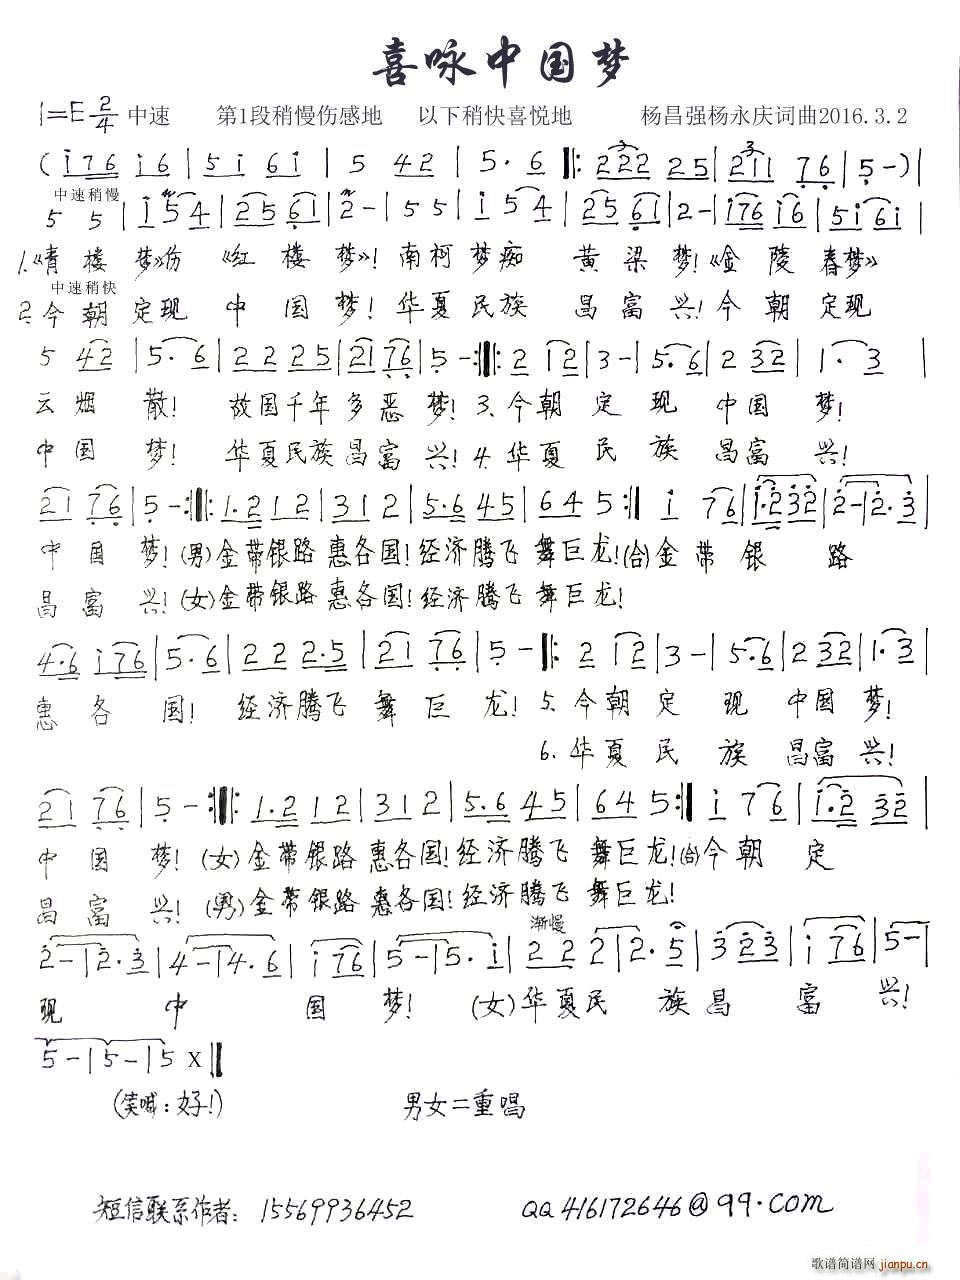 喜咏中国梦
1=E 2/4 中速 第1段稍慢伤感地 以下稍快喜悦地 杨昌强杨永庆词曲2016.3.2
( i 7 6 i 6 | 5 i 6 i | 5 4 2 | 5· 6 ‖: 2 2 2 2 5 | 2 1 1 7 6 | 5 - ) |
中速稍慢
5 5 | i 5 4 | 2 5 6 1 | 2 - | 5 5 | i 5 4 | 2 5 6 1 | 2 - | i 7 6 i 6 | 5 i 6 i |
1.《青楼梦》伤《红楼梦》！南柯梦痴 黄梁梦！《金陵春梦》
中速稍快
2. 今朝定现 中国梦！华夏民族 昌富兴！今朝定现
5 4 2 | 5· 6 | 2 2 2 5 | 2 1 7 6 | 5 - :‖: 2 1 2 | 3 - | 5· 6 | 2 3 2 | 1· 3 |
云烟散！ 故国千年多恶梦！3. 今朝定现中国梦！
中国梦！ 华夏民族昌富兴！4. 华夏民族昌富兴！
2 1 7 6 | 5 - :‖: 1·2 1 2 | 3 1 2 | 5·6 4 5 | 6 4 5 :‖ i 7 6 | i·2 3 2 | 2 - | 2·3 |
中国梦！(男)金带银路惠各国！经济腾飞舞巨龙！(合)金带银路
昌富兴！(女)金带银路惠各国！经济腾飞舞巨龙！
4·6 i 7 6 | 5·6 | 2 2 2·5 | 2 1 7 6 | 5 - ‖: 2 1 2 | 3 - | 5·6 | 2 3 2 | 1·3 |
惠各国！经济腾飞舞巨龙！5. 今朝定现中国梦！
6. 华夏民族昌富兴！
2 1 7 6 | 5 - :‖: 1·2 1 2 | 3 1 2 | 5·6 4 5 | 6 4 5 :‖ i 7 6 | i·2 3 2 |
中国梦！(女)金带银路惠各国！经济腾飞舞巨龙！(合)今朝定
昌富兴！(男)金带银路惠各国！经济腾飞舞巨龙！
渐慢
2 - | 2·3 | 4 - | 4·6 | i 7 6 | 5 - | 5·i | 2 2 2 | 2·5 | 3 2 3 | i 7 6 | 5 - |
现中国梦！(女)华夏民族昌富兴！
5 - | 5 - | 5 X ‖
(笑喊：好！) 男女二重唱
短信联系作者：15569936452 QQ416172646@qq.com
歌谱简谱网 jianpu.cn